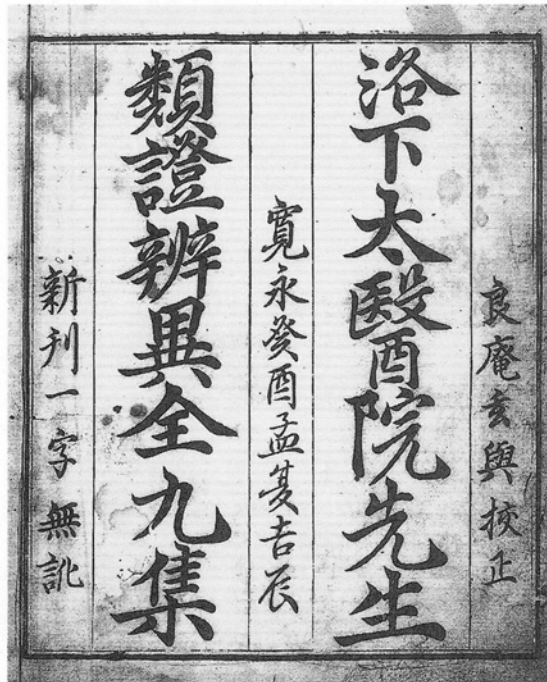 良庵玄與挍正
洛下太醫院先生
寛永癸酉孟夏吉辰
類證辨異全九集
新刊一字無訛